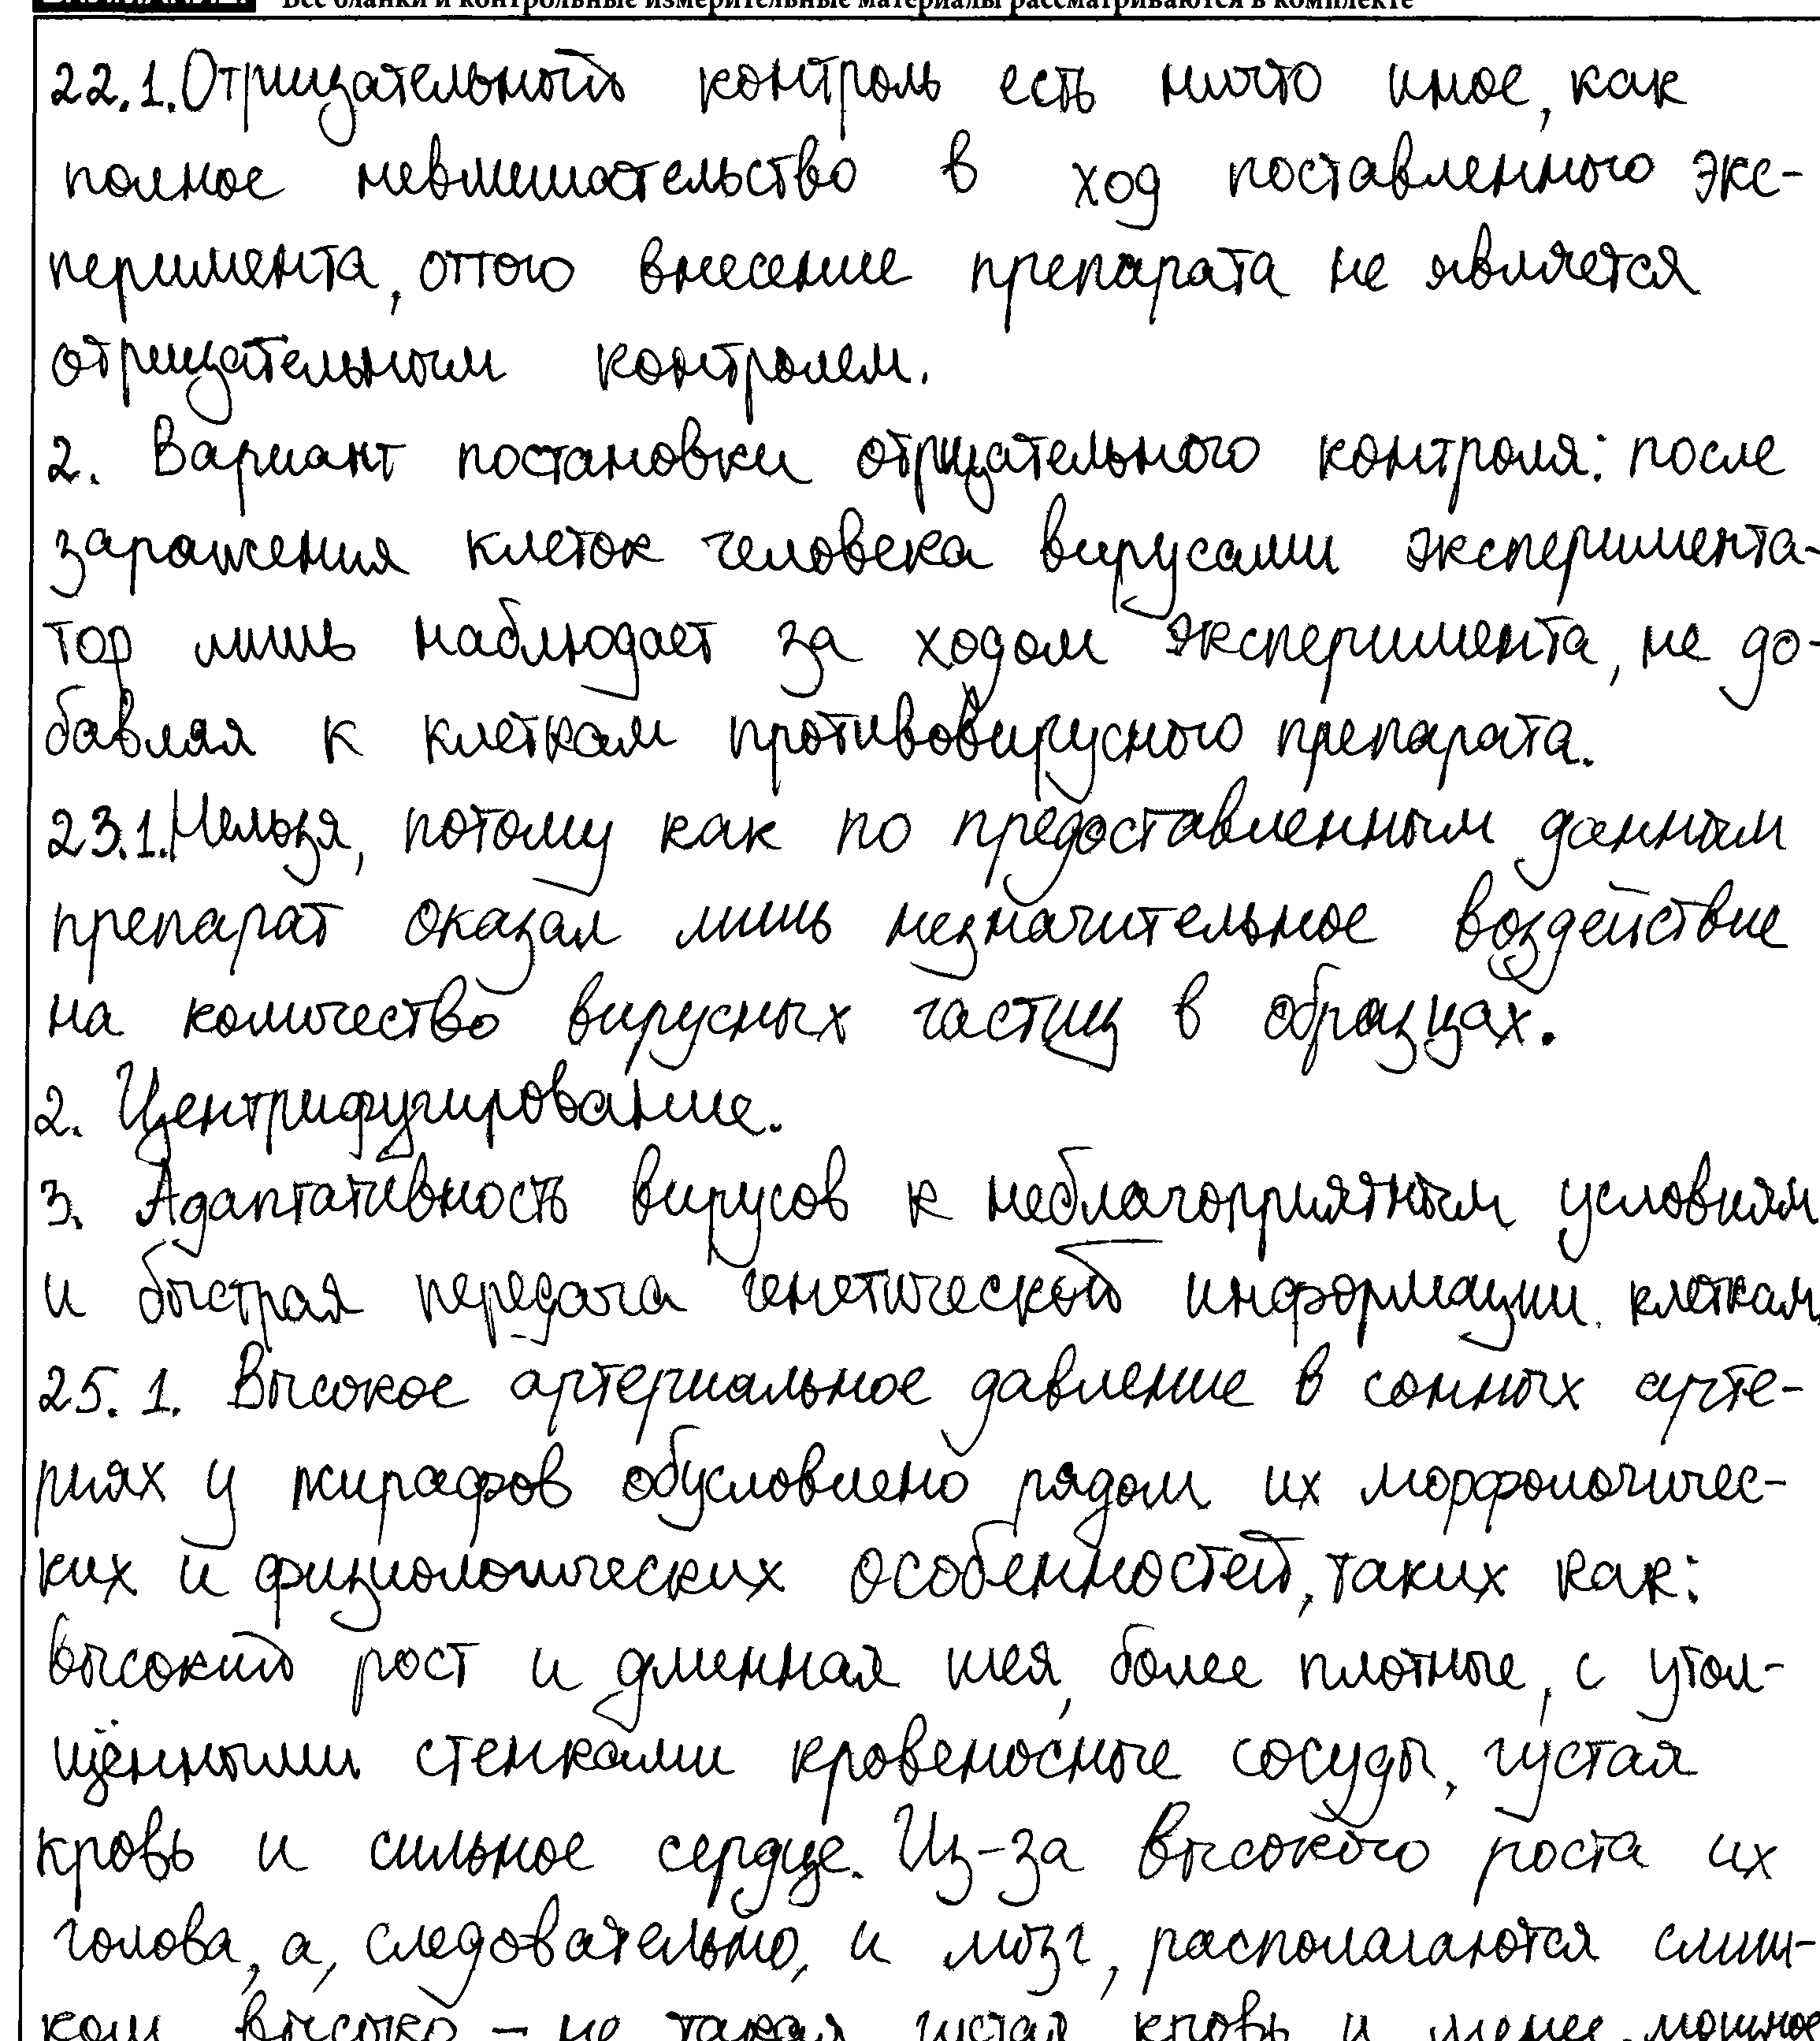 Все бланки и контрольные измерительные материалы рассматриваются в комплекте
22.1. Отрицательный контроль есть ничто иное, как
полное невмешательство в ход поставленного экс-
перимента, оттого внесение препарата не является
отрицательным контролем.
2. Вариант постановки отрицательного контроля: после
заражения клеток человека вирусами эксперимента-
тор лишь наблюдает за ходом эксперимента, не до-
бавляя к клеткам противовирусного препарата.
23.1. Нельзя, потому как по предоставленным данным
препарат оказал лишь незначительное воздействие
на количество вирусных частиц в образцах.
2. Центрифугирование.
3. Адаптативность вирусов к неблагоприятным условиям
и быстрая передача генетической информации клеткам.
25.1. Высокое артериальное давление в сонных арте-
риях у жирафов обусловлено рядом их морфологичес-
ких и физиологических особенностей, таких как:
высокий рост и длинная шея, более плотные, с утол-
щёнными стенками кровеносные сосуды, густая
кровь и сильное сердце. Из-за высокого роста их
голова, а, следовательно, и мозг, располагаются слиш-
ком высоко – не такая густая кровь и менее мощное